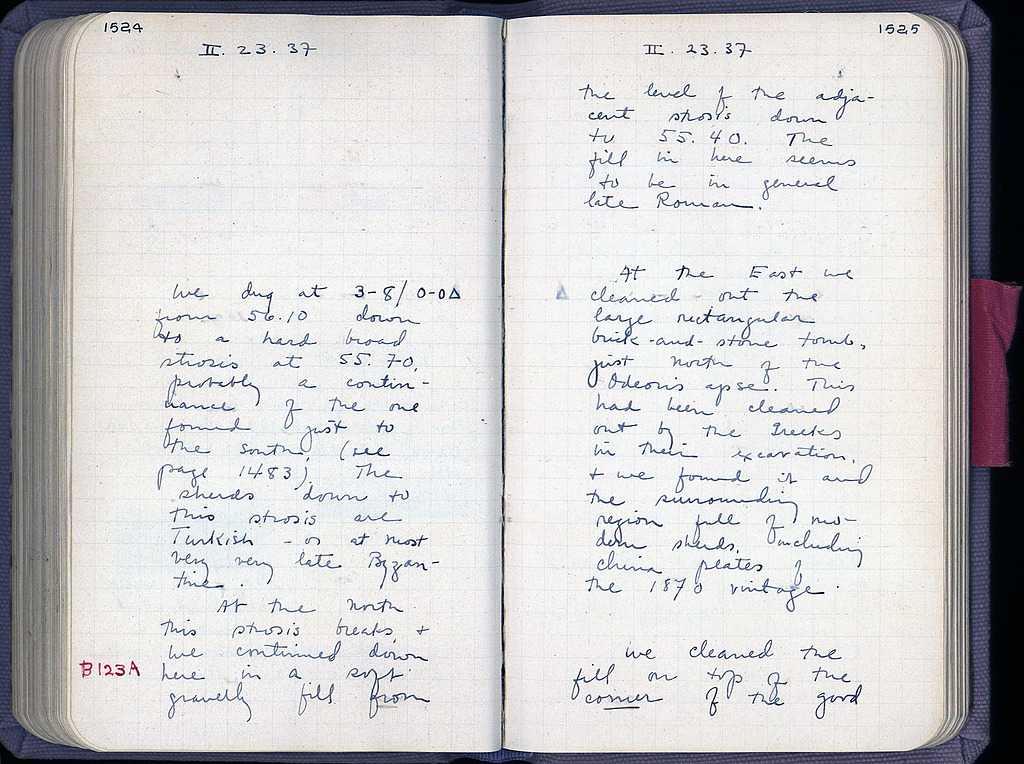 1524
II. 23. 37
We dug at 3-8/0-0Δ
from 56.10 down
to a hard broad
strosis at 55.70,
probably a contin-
uance of the one
found just to
the south, (see
page 1483). The
sherds down to
this strosis are
Turkish - or at most
very very late Byzan-
tine.
At the north
this strosis breaks, +
we continued down
B123A here in a soft
gravelly fill from
1525
II. 23. 37
the level of the adja-
cent strosis down
to 55.40. The
fill in here seems
to be in general
late Roman.
At the East we
cleaned out the
large rectangular
brick-and-stone tomb,
just north of the
Odeion's apse. This
had been cleaned
out by the Greeks
in their excavation,
+ we found it and
the surrounding
region full of mo-
dern sherds, including
china plates of
the 1870 vintage.
We cleaned the
fill on top of the
corner of the good